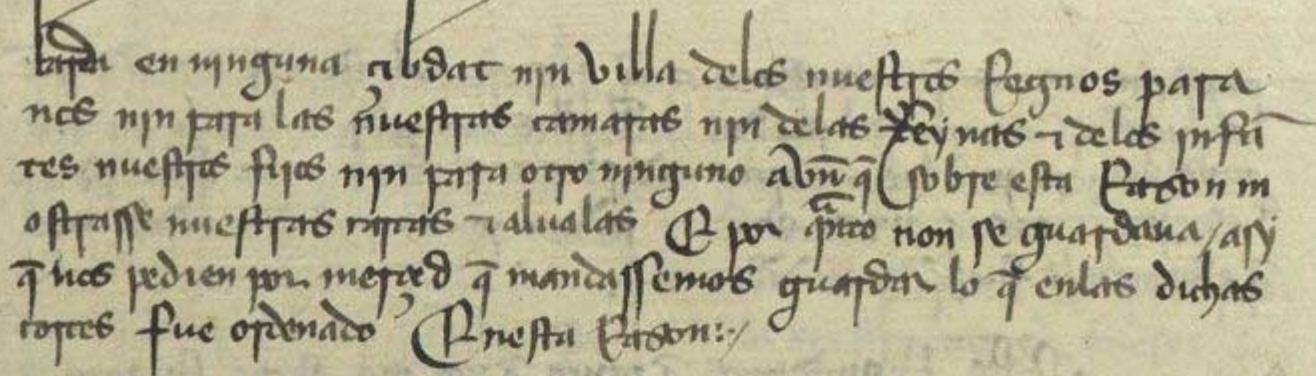 en ninguna cibdat nin villa delos nuestros Regnos para
nos nin para las nuestras camaras nin delas Reynas e delos infã
tes nuestros fijos nin para otro ninguno avn̄ q̃ sobre esta Razon m
ostrasse nuestras cartas e alualas E por quãto non se guardaua / asy
q̃ nos pedien por merced q̃ mandassemos guardar lo q̃ enlas dichas
cortes fue ordenado Enesta Razon:~/